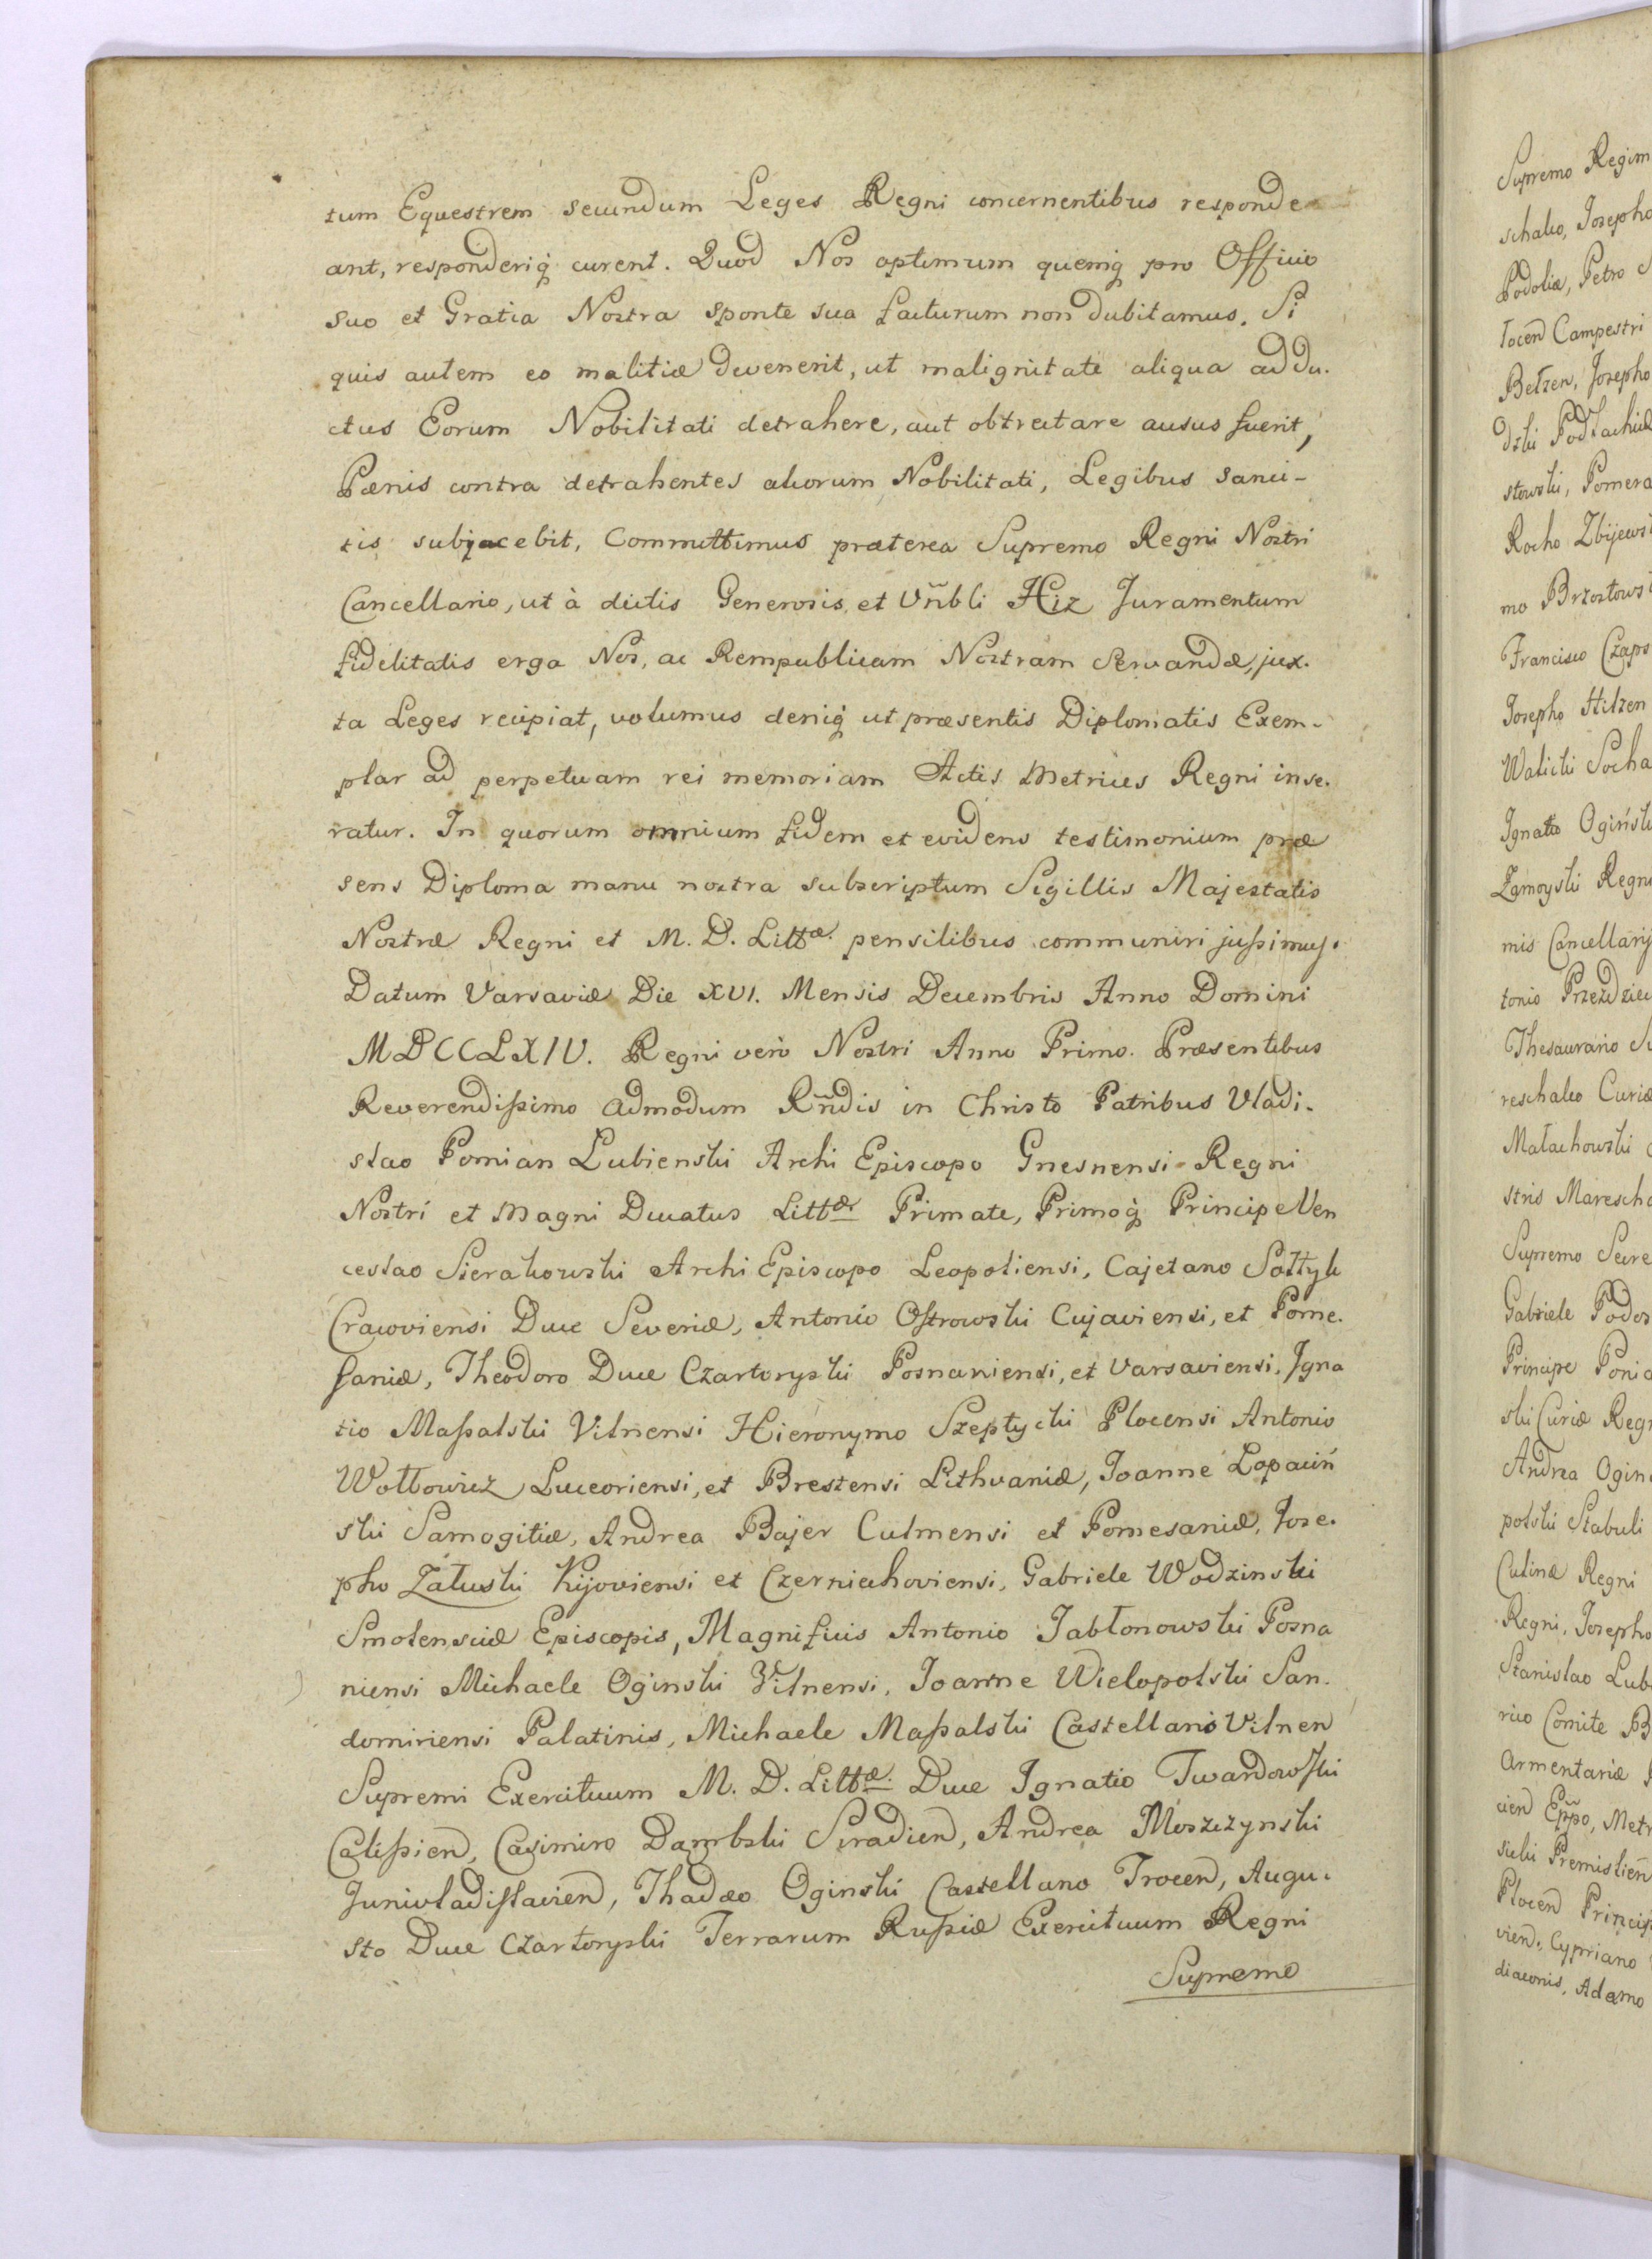 tum Equestrem secundum Leges Regni concernentibus responde
ant, responderiq́ curent. Quod Nos optimum quemq́ pro Officio
suo et Gratia Nostra sponte sua facturum non dubitamus. Si
quis autem eo malitiæ devenerit, ut malignitate aliqua addu.
ctus Eorum Nobilitati detrahere, aut obtrectare ausus fuerit,
Pænis contra detrahentes aliorum Nobilitati, Legibus sanci-
tis subjacebit, Committimus præterea Supremo Regni Nostri
Cancellario, ut à dictis Generosis et Vn̄bli Hiz Juramentum
fidelitatis erga Nos, ac Rempublicam Nostram servandæ, jux.
ta Leges recipiat, volumus deniq́ ut præsentis Diplomatis Exem-
plar ad perpetuam rei memoriam Actis Metrices Regni inse.
ratur. In quorum omnium fidem et evidens testimonium præ
sens Diploma manu nostra subscriptum Sigillis Majestatis
Nostræ Regni et M. D. Littæ. pensilibus communiri jußimus.
Datum Varsaviæ Die XVI. Mensis Decembris Anno Domini
MDCCLXIV. Regni verò Nostri Anno Primo. Præsentibus
Reverendißimo admodum Rn̄dis in Christo Patribus Vladi-
slao Pomian Lubienski Archi Episcopo Gnesnensi Regni
Nostri et Magni Ducatus Littæ Primate, Primoq́ Principe Ven
ceslao Sierakowski Archi Episcopo Leopoliensi, Cajetano Sołtyk
Cracoviensi Duce Severiæ, Antonio Ostrowski Cujaviensi, et Pome.
saniæ, Theodoro Duce Czartoryski Posnaniensi, et Varsaviensi, Igna
tio Maßalski Vilnensi Hieronymo Szeptycki Plocensi Antonio
Wołłowicz Luceoriensi, et Brestensi Lithvaniæ, Joanne Łopaciń
ski Samogitiæ, Andrea Bajer Culmensi et Pomesaniæ, Jose.
pho Załuski Kijoviensi et Czerniechoviensi, Gabriele Wodzinski
Smolensciæ Episcopis, Magnificis Antonio Jabłonowski Posna
niensi Michaele Oginski Vilnensi, Joanne Wielopolski San.
domiriensi Palatinis, Michaele Maßalski Castellanis Vilnen
Supremi Exercituum M. D. Littæ. Duce Ignatio Twardowski
Calißien, Casimiro Dąmbski Siradien, Andrea Moszczynski
Junivladislavien, Thadæo Oginski Castellano Trocen, Augu.
sto Duce Czartoryski Terrarum Rußiæ Exercituum Regni
Supremo
Supremo Regim
schalco, Josepho
Podoliæ, Petro
Campestri
Betzen, Josepho
dzki Podlachiæ
stowski, Pomera
Rocho Zbijews
mo Brzostows
Francisco Czaps
Josepho Hilzen
Walicki Socha
Ignatio Ogińsk
Zamoyski Regni
mis Cancellarij
tonio Przezdziec
Thesaurario Su
reschalco Curiæ
Małachowski
stris Marescha
Supremo Secre
Gabriele Podos
Principe Ponia
ski Curiæ Regn
Andrea Ogin
polski Stabuli
Culinæ Regni
Regni, Josepho
Stanislao Lub
rico Comite B
Armentariæ
cien Ep̄po, Metr
sicki Premislien
Plocen Princip
vien, Cypriano
diaconis, Adamo